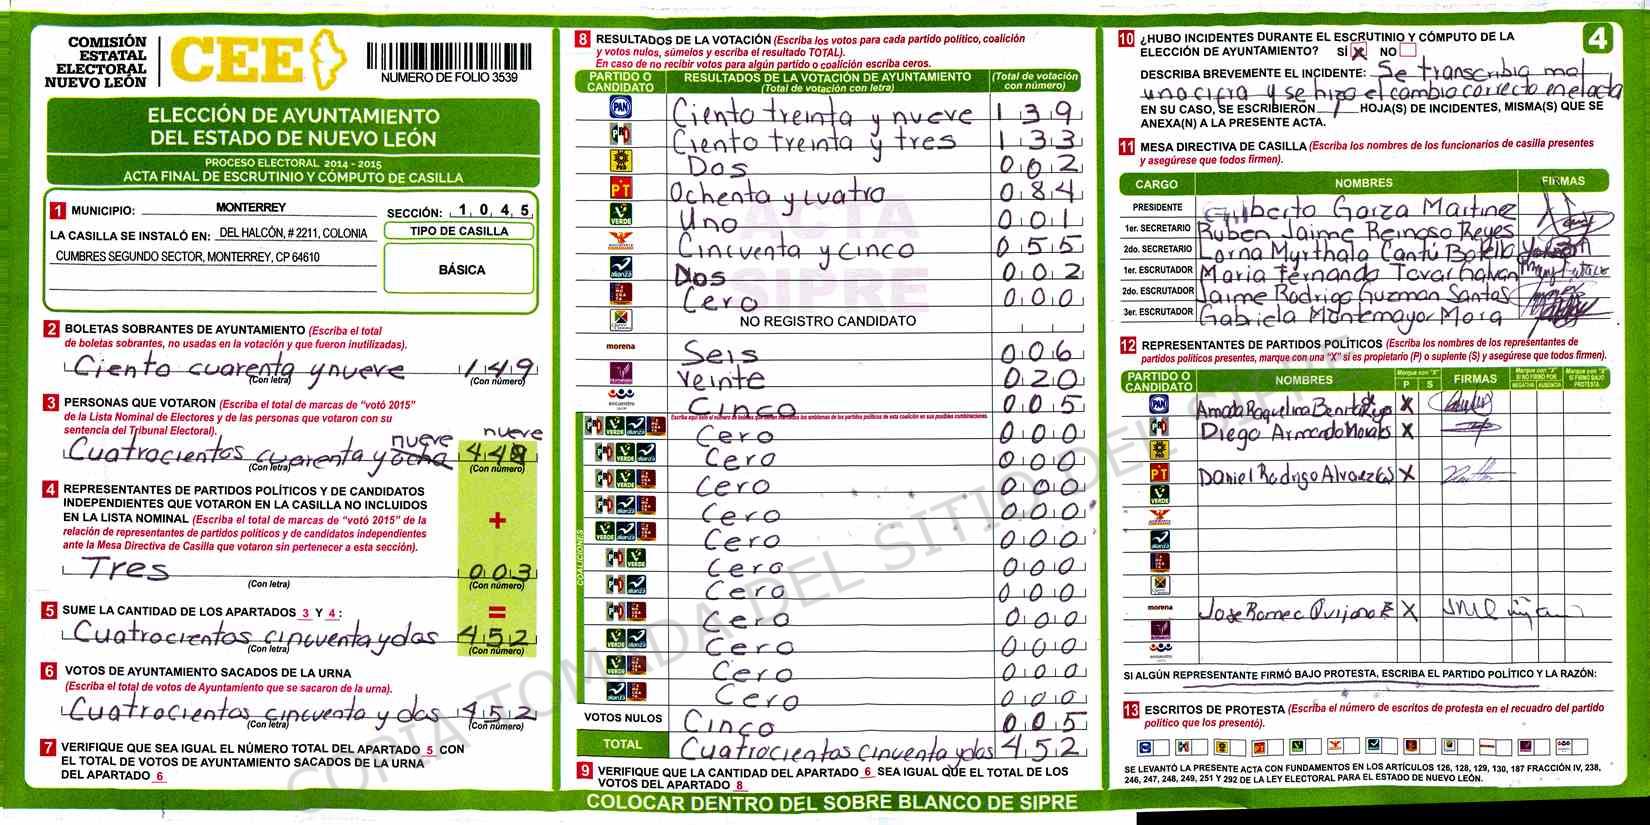 COMISIÓN
ESTATAL
ELECTORAL
NUEVO LEÓN
CEE
NUMERO DE FOLIO 3539
ELECCIÓN DE AYUNTAMIENTO
DEL ESTADO DE NUEVO LEÓN
PROCESO ELECTORAL 2014 - 2015
ACTA FINAL DE ESCRUTINIO Y CÓMPUTO DE CASILLA
1 MUNICIPIO: MONTERREY SECCIÓN: 1, 0, 4, 5
LA CASILLA SE INSTALÓ EN: DEL HALCÓN, # 2211, COLONIA
CUMBRES SEGUNDO SECTOR, MONTERREY, CP 64610
TIPO DE CASILLA
BÁSICA
2 BOLETAS SOBRANTES DE AYUNTAMIENTO (Escriba el total
de boletas sobrantes, no usadas en la votación y que fueron inutilizadas).
Ciento cuarenta y nueve 149
(Con letra) (Con número)
3 PERSONAS QUE VOTARON (Escriba el total de marcas de “votó 2015”
de la Lista Nominal de Electores y de las personas que votaron con su
sentencia del Tribunal Electoral).
nueve nueve
Cuatrocientos cuarenta y ocho 449
(Con letra) (Con número)
4 REPRESENTANTES DE PARTIDOS POLÍTICOS Y DE CANDIDATOS
INDEPENDIENTES QUE VOTARON EN LA CASILLA NO INCLUIDOS
EN LA LISTA NOMINAL (Escriba el total de marcas de “votó 2015” de la
relación de representantes de partidos políticos y de candidatos independientes
ante la Mesa Directiva de Casilla que votaron sin pertenecer a esta sección).
+
Tres 003
(Con letra) (Con número)
5 SUME LA CANTIDAD DE LOS APARTADOS 3 Y 4: =
Cuatrocientos cincuenta y dos 452
(Con letra) (Con número)
6 VOTOS DE AYUNTAMIENTO SACADOS DE LA URNA
(Escriba el total de votos de Ayuntamiento que se sacaron de la urna).
Cuatrocientos cincuenta y dos 452
(Con letra) (Con número)
7 VERIFIQUE QUE SEA IGUAL EL NÚMERO TOTAL DEL APARTADO 5 CON
EL TOTAL DE VOTOS DE AYUNTAMIENTO SACADOS DE LA URNA
DEL APARTADO 6
8 RESULTADOS DE LA VOTACIÓN (Escriba los votos para cada partido político, coalición
y votos nulos, súmelos y escriba el resultado TOTAL).
En caso de no recibir votos para algún partido o coalición escriba ceros.
PARTIDO O CANDIDATO RESULTADOS DE LA VOTACIÓN DE AYUNTAMIENTO (Total de votación con letra) (Total de votación con número)
PAN Ciento treinta y nueve 139
PRI Ciento treinta y tres 133
PRD Dos 002
PT Ochenta y cuatro 084
VERDE Uno 001
Cincuenta y cinco 055
alianza Dos 002
Cero 000
NO REGISTRO CANDIDATO
morena Seis 006
Veinte 020
encuentro Cinco 005
COALICIONES
PRI VERDE alianza Cero 000
VERDE alianza Cero 000
PRI VERDE Cero 000
PRI alianza Cero 000
VERDE alianza Cero 000
PRI VERDE Cero 000
PRI alianza Cero 000
PRI Cero 000
VERDE alianza Cero 000
VERDE Cero 000
alianza Cero 000
VOTOS NULOS Cinco 005
TOTAL Cuatrocientos cincuenta y dos 452
9 VERIFIQUE QUE LA CANTIDAD DEL APARTADO 6 SEA IGUAL QUE EL TOTAL DE LOS
VOTOS DEL APARTADO 8
ACTA
SIPRE
COPIA TOMADA DEL SITIO DEL SIPRE
COLOCAR DENTRO DEL SOBRE BLANCO DE SIPRE
4
10 ¿HUBO INCIDENTES DURANTE EL ESCRUTINIO Y CÓMPUTO DE LA
ELECCIÓN DE AYUNTAMIENTO? SÍ X NO
DESCRIBA BREVEMENTE EL INCIDENTE: Se transcribia mal
una cifra y se hizo el cambio correcto en el acta
EN SU CASO, SE ESCRIBIERON HOJA(S) DE INCIDENTES, MISMA(S) QUE SE
ANEXA(N) A LA PRESENTE ACTA.
11 MESA DIRECTIVA DE CASILLA (Escriba los nombres de los funcionarios de casilla presentes
y asegúrese que todos firmen).
CARGO NOMBRES FIRMAS
PRESIDENTE Gilberto Garza Martinez
1er. SECRETARIO Ruben Jaime Reinoso Reyes
2do. SECRETARIO Lorna Myrthala Cantú Botello
1er. ESCRUTADOR Maria Fernanda
2do. ESCRUTADOR Jaime Rodrigo Guzman Santos
3er. ESCRUTADOR Gabriela Montemayor Mora
12 REPRESENTANTES DE PARTIDOS POLÍTICOS (Escriba los nombres de los representantes de
partidos políticos presentes, marque con una “X” si es propietario (P) o suplente (S) y asegúrese que todos firmen).
PARTIDO O CANDIDATO NOMBRES Marque con “X” P S FIRMAS Marque con “X” SI NO FIRMÓ POR: NEGATIVA AUSENCIA Marque con “X” SI FIRMÓ BAJO PROTESTA
PAN X
PRI Diego Armando Morales X
PRD
PT Daniel Rodrigo X
VERDE
alianza
morena Jose X
encuentro
SI ALGÚN REPRESENTANTE FIRMÓ BAJO PROTESTA, ESCRIBA EL PARTIDO POLÍTICO Y LA RAZÓN:
13 ESCRITOS DE PROTESTA (Escriba el número de escritos de protesta en el recuadro del partido
político que los presentó).
SE LEVANTÓ LA PRESENTE ACTA CON FUNDAMENTOS EN LOS ARTÍCULOS 126, 128, 129, 130, 187 FRACCIÓN IV, 238,
246, 247, 248, 249, 251 Y 292 DE LA LEY ELECTORAL PARA EL ESTADO DE NUEVO LEÓN.